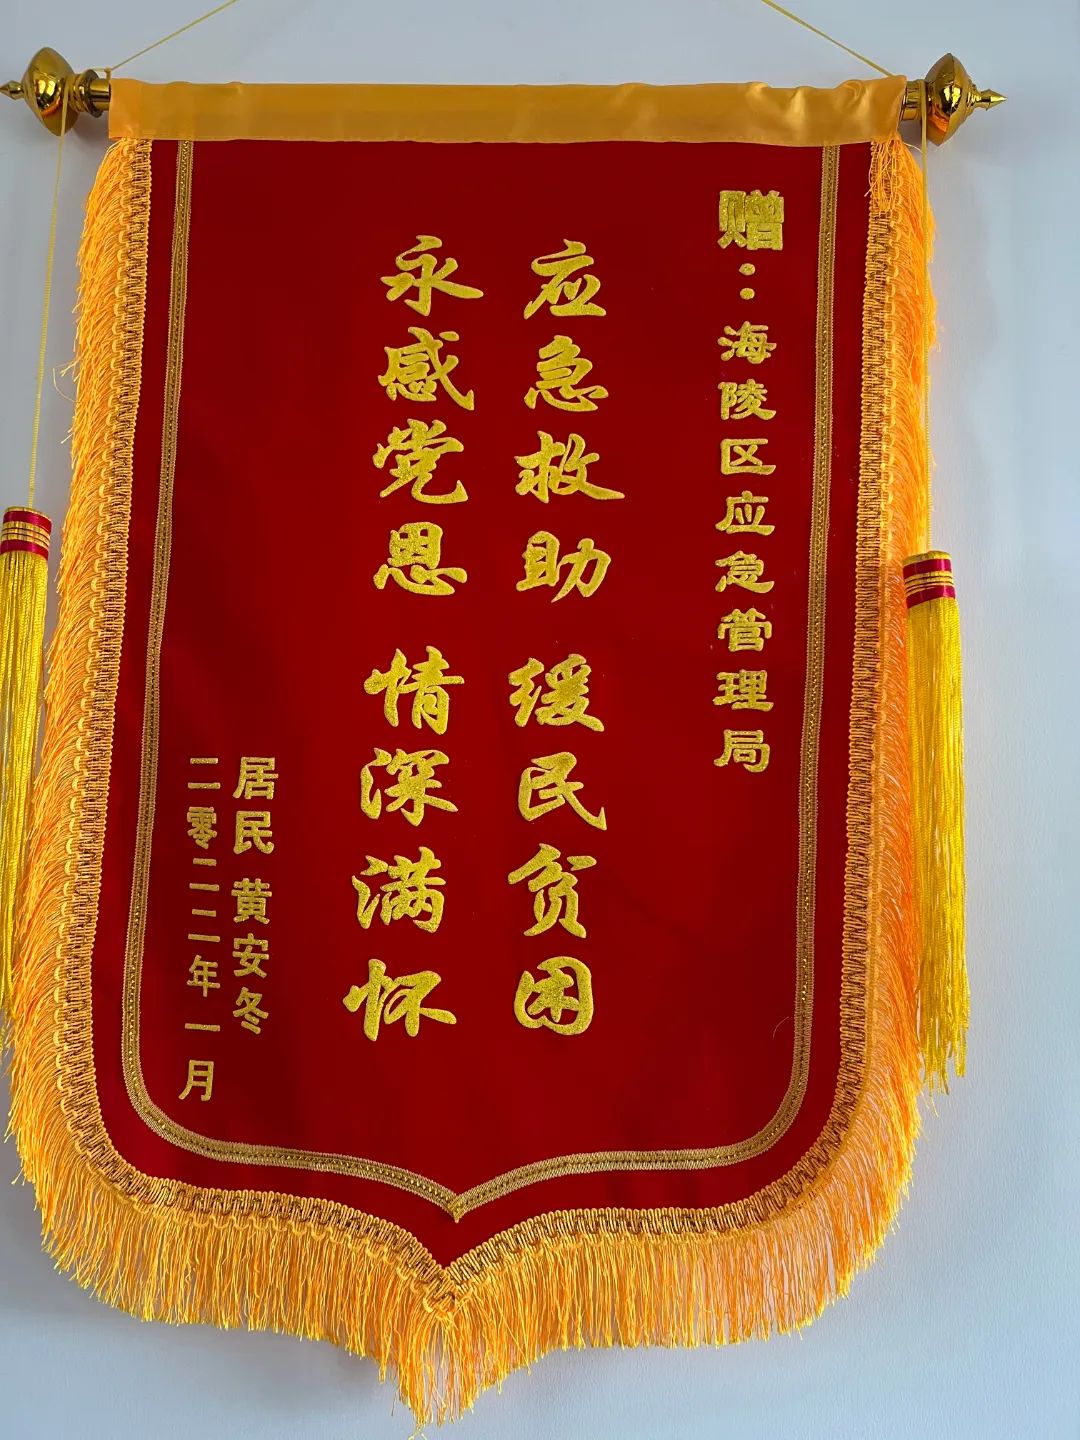 赠：海陵区应急管理局
应急救助 缓民贫困
永感党恩 情深满怀
居民 黄安冬
二零二二年一月